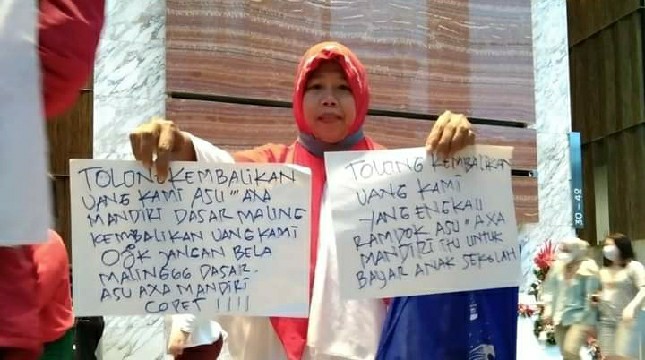 TOLONG KEMBALIKAN
UANG KAMI ASU "AXA
MANDIRI DASAR MALING
KEMBALIKAN UANG KAMI
OJK JANGAN BELA
MALINGGG DASAR-
ASU AXA MANDIRI
COPET !!!!
TOLONG KEMBALIKAN
UANG KAMI
YANG ENGKAU
RAMPOK ASU "AXA
MANDIRI ITU UNTUK
BAYAR ANAK SEKOLAH
30-42